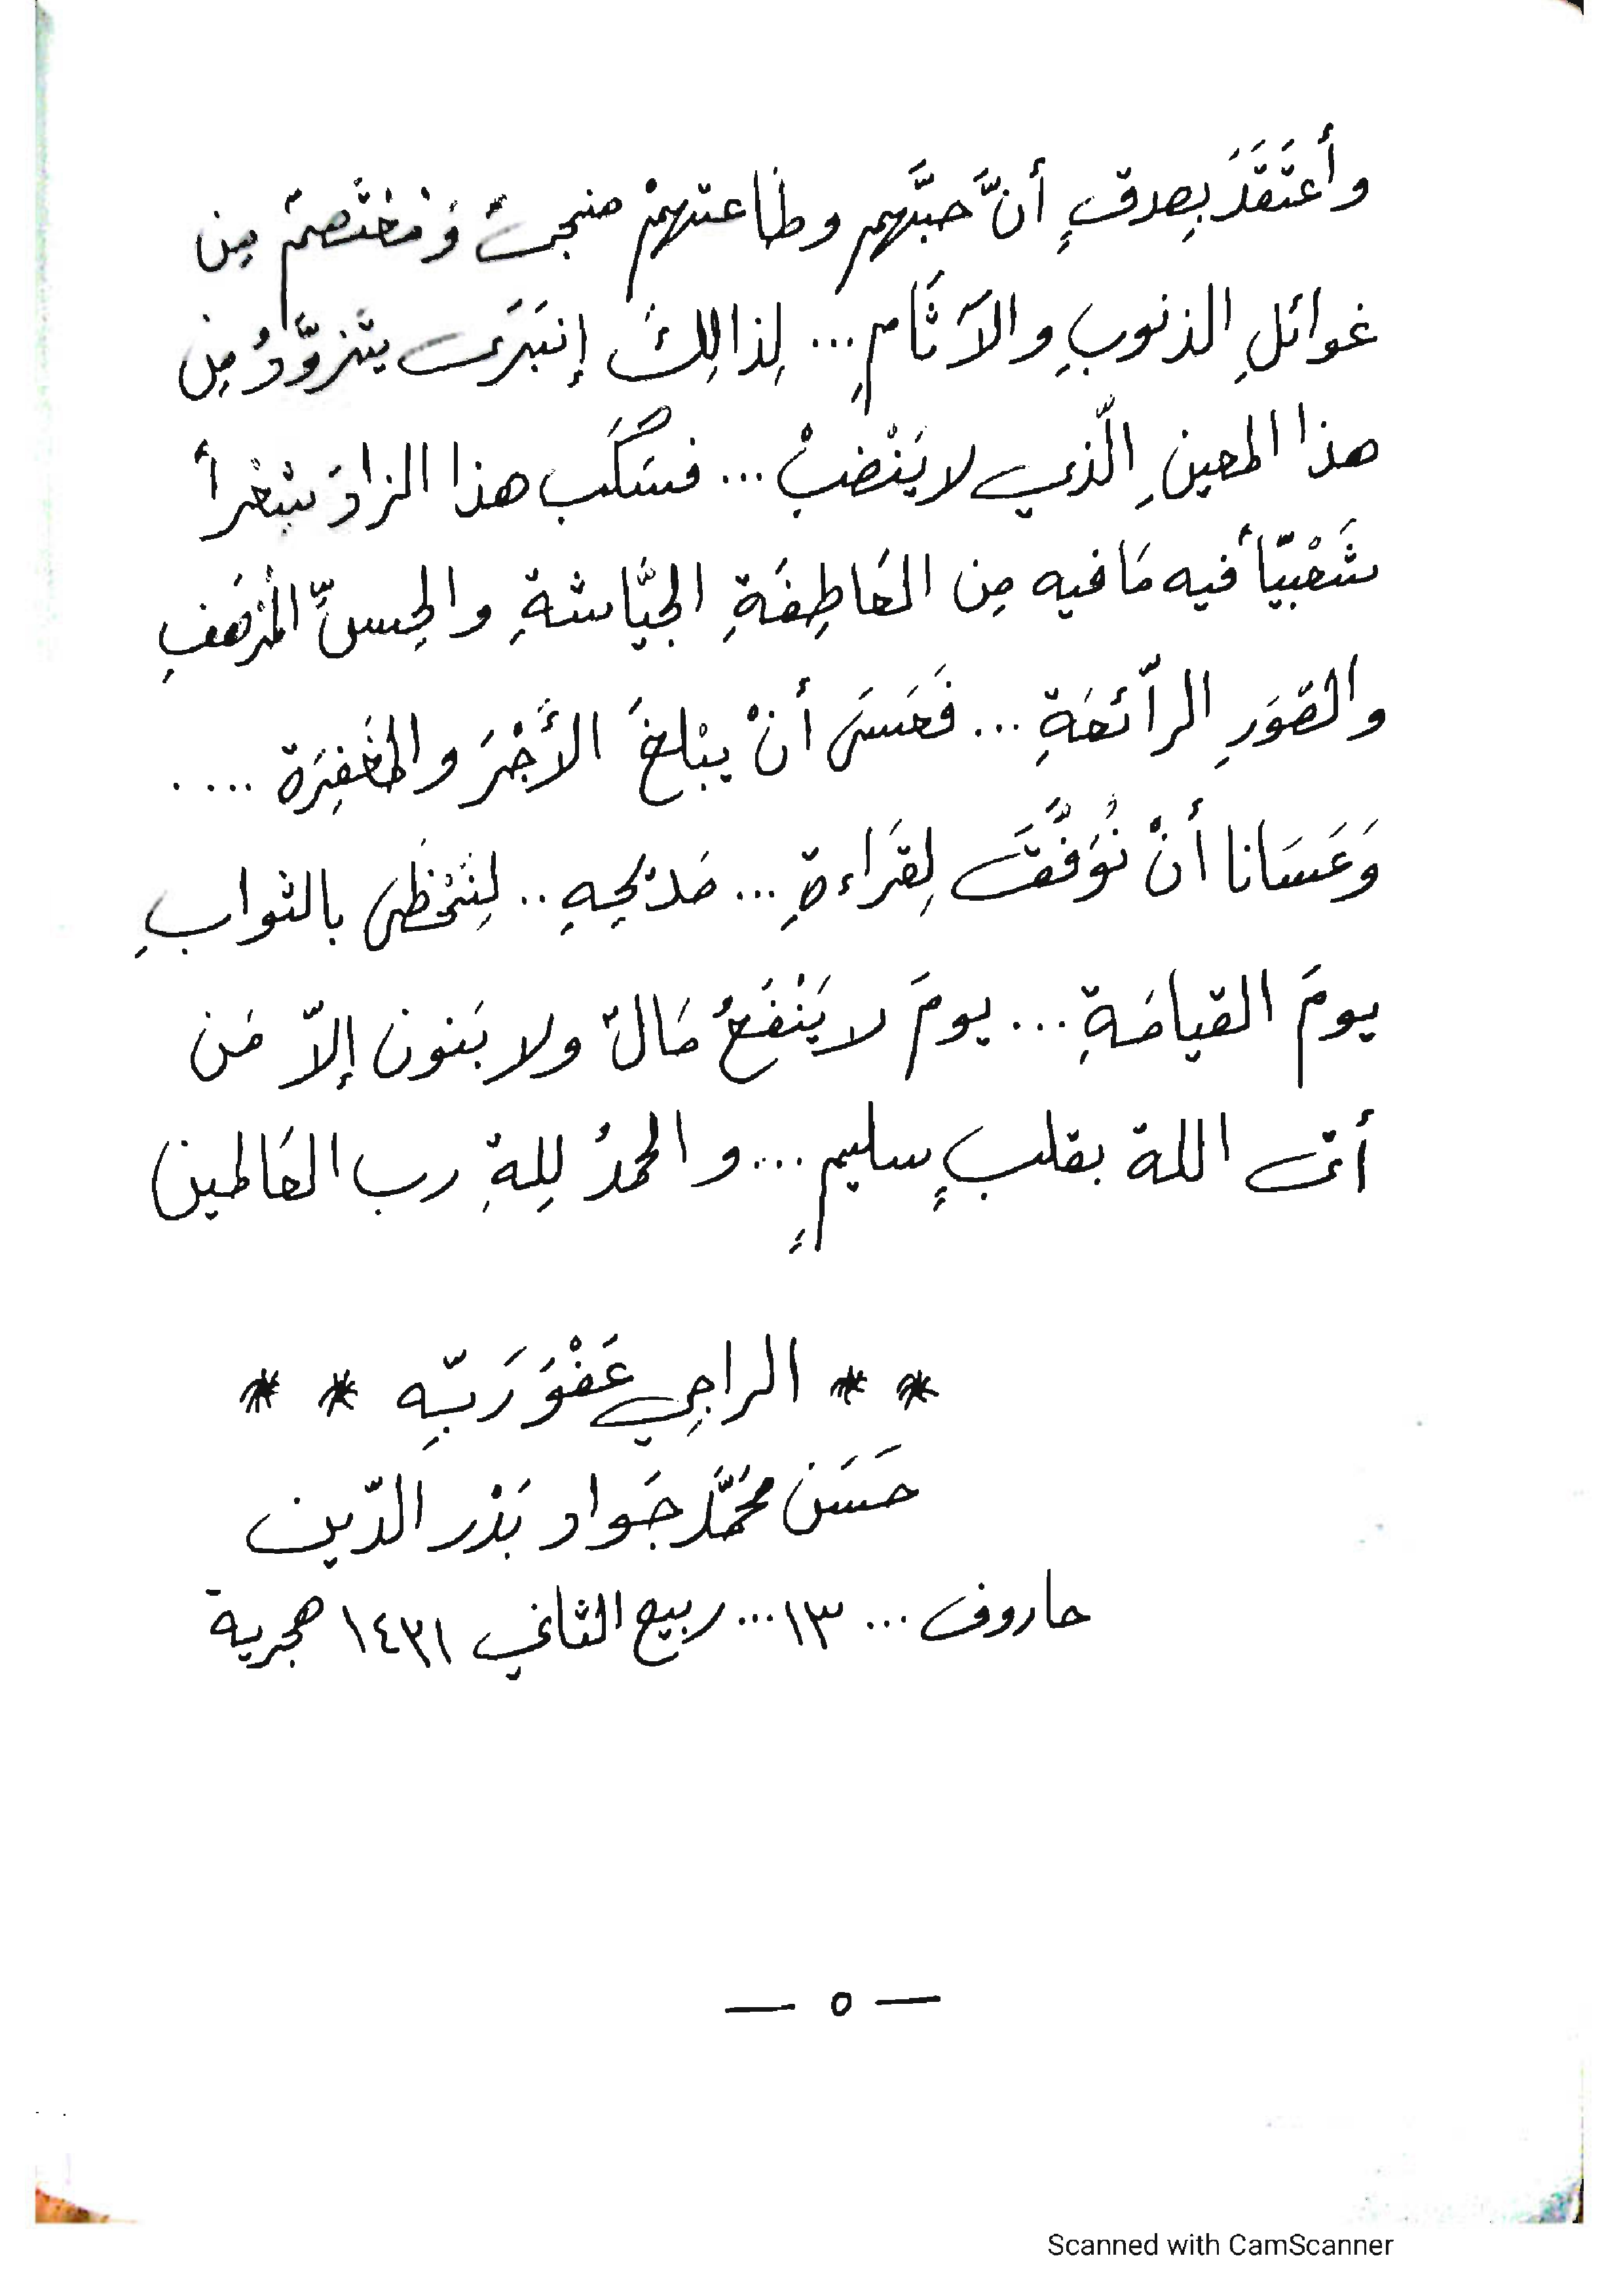 وأعتَقَدَ بِصدقٍ أنَّ حبَّهم وطَاعتهمْ منجىً وَمُعْتَصمٌ مِن
غوائلِ الذنوبِ والآثَامِ ... لِذالِكَ إنبَرَى يتزوَّدُ مِن
هذا المعينِ الّذي لا يَنْضبْ ... فسَكَب هذا الزادَ شِعْراً
شَعْبيّاً فيه مَا فيه مِن العَاطِفَةِ الجيَّاشةِ والحِسِّ المُرْهَفِ
والصّوَرِ الرّائعَةِ ... فَعَسَى أنْ يبْلغَ الأَجْرَ والمَغْفِرَة ....
وَعَسَانا أنْ نُوَفَّقَ لِقرَاءةِ ... مَديحِهِ .. لِنَحْظَى بالثوابِ
يومَ القيامَةِ ... يومَ لا يَنْفَعُ مَالٌ ولا بَنون إلاّ مَن
أتى اللة بقلبٍ سليمٍ .... والحمدُ لِلةِ رب العَالمين
** الراجِي عَفْوَ رَبّهِ **
حَسَن محَمَّد جَواد بَدْر الدّين
حاروف ... ١٣ ... ربيع الثاني ١٤٣١ هجرية
— ٥ —
Scanned with CamScanner